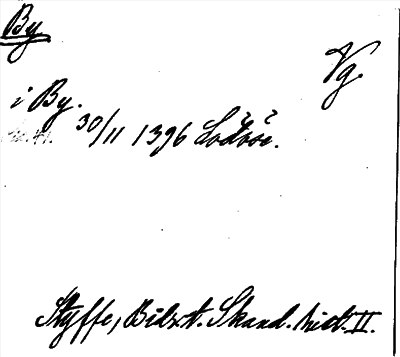 By
Vg.
i By.
30/11 1396
Styffe, Bidr. t. Skand. hist. II.